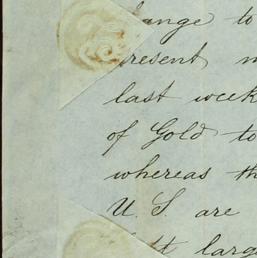 change to
present
last week
of Gold to
whereas th
U. S. are
larg